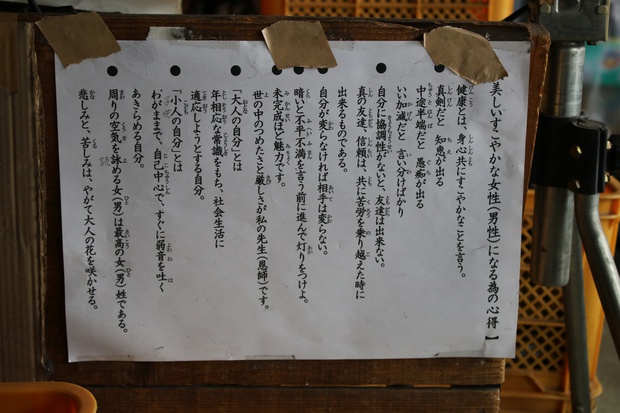 【美しいすこやかな女性(男性)になる為の心得】
健康とは、身心共にすこやかなことを言う。
真剣だと 知恵が出る
中途半端だと 愚痴が出る
いい加減だと 言い分けばかり
自分に協調性がないと、友達は出来ない。
真の友達、信頼は、共に苦労を乗り越えた時に
出来るものである。
自分が変らなければ相手は変らない。
暗いと不平不満を言う前に進んで灯りをつけよ。
未完成ほど魅力です。
世の中のつめたさと厳しさが私の先生(恩師)です。
「大人の自分」とは
年相応な常識をもち、社会生活に
適応しようとする自分。
「小人の自分」とは
わがままで、自己中心で、すぐに弱音を吐く
あきらめる自分。
周りの空気を詠める女(男)は最高の女(男)姓である。
悲しみと、苦しみは、やがて大人の花を咲かせる。